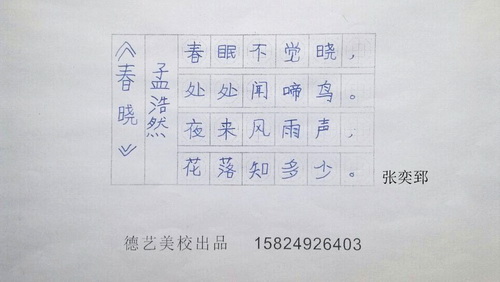 《春晓》
孟浩然
春眠不觉晓，
处处闻啼鸟。
夜来风雨声，
花落知多少。
张奕郅
德艺美校出品 15824926403